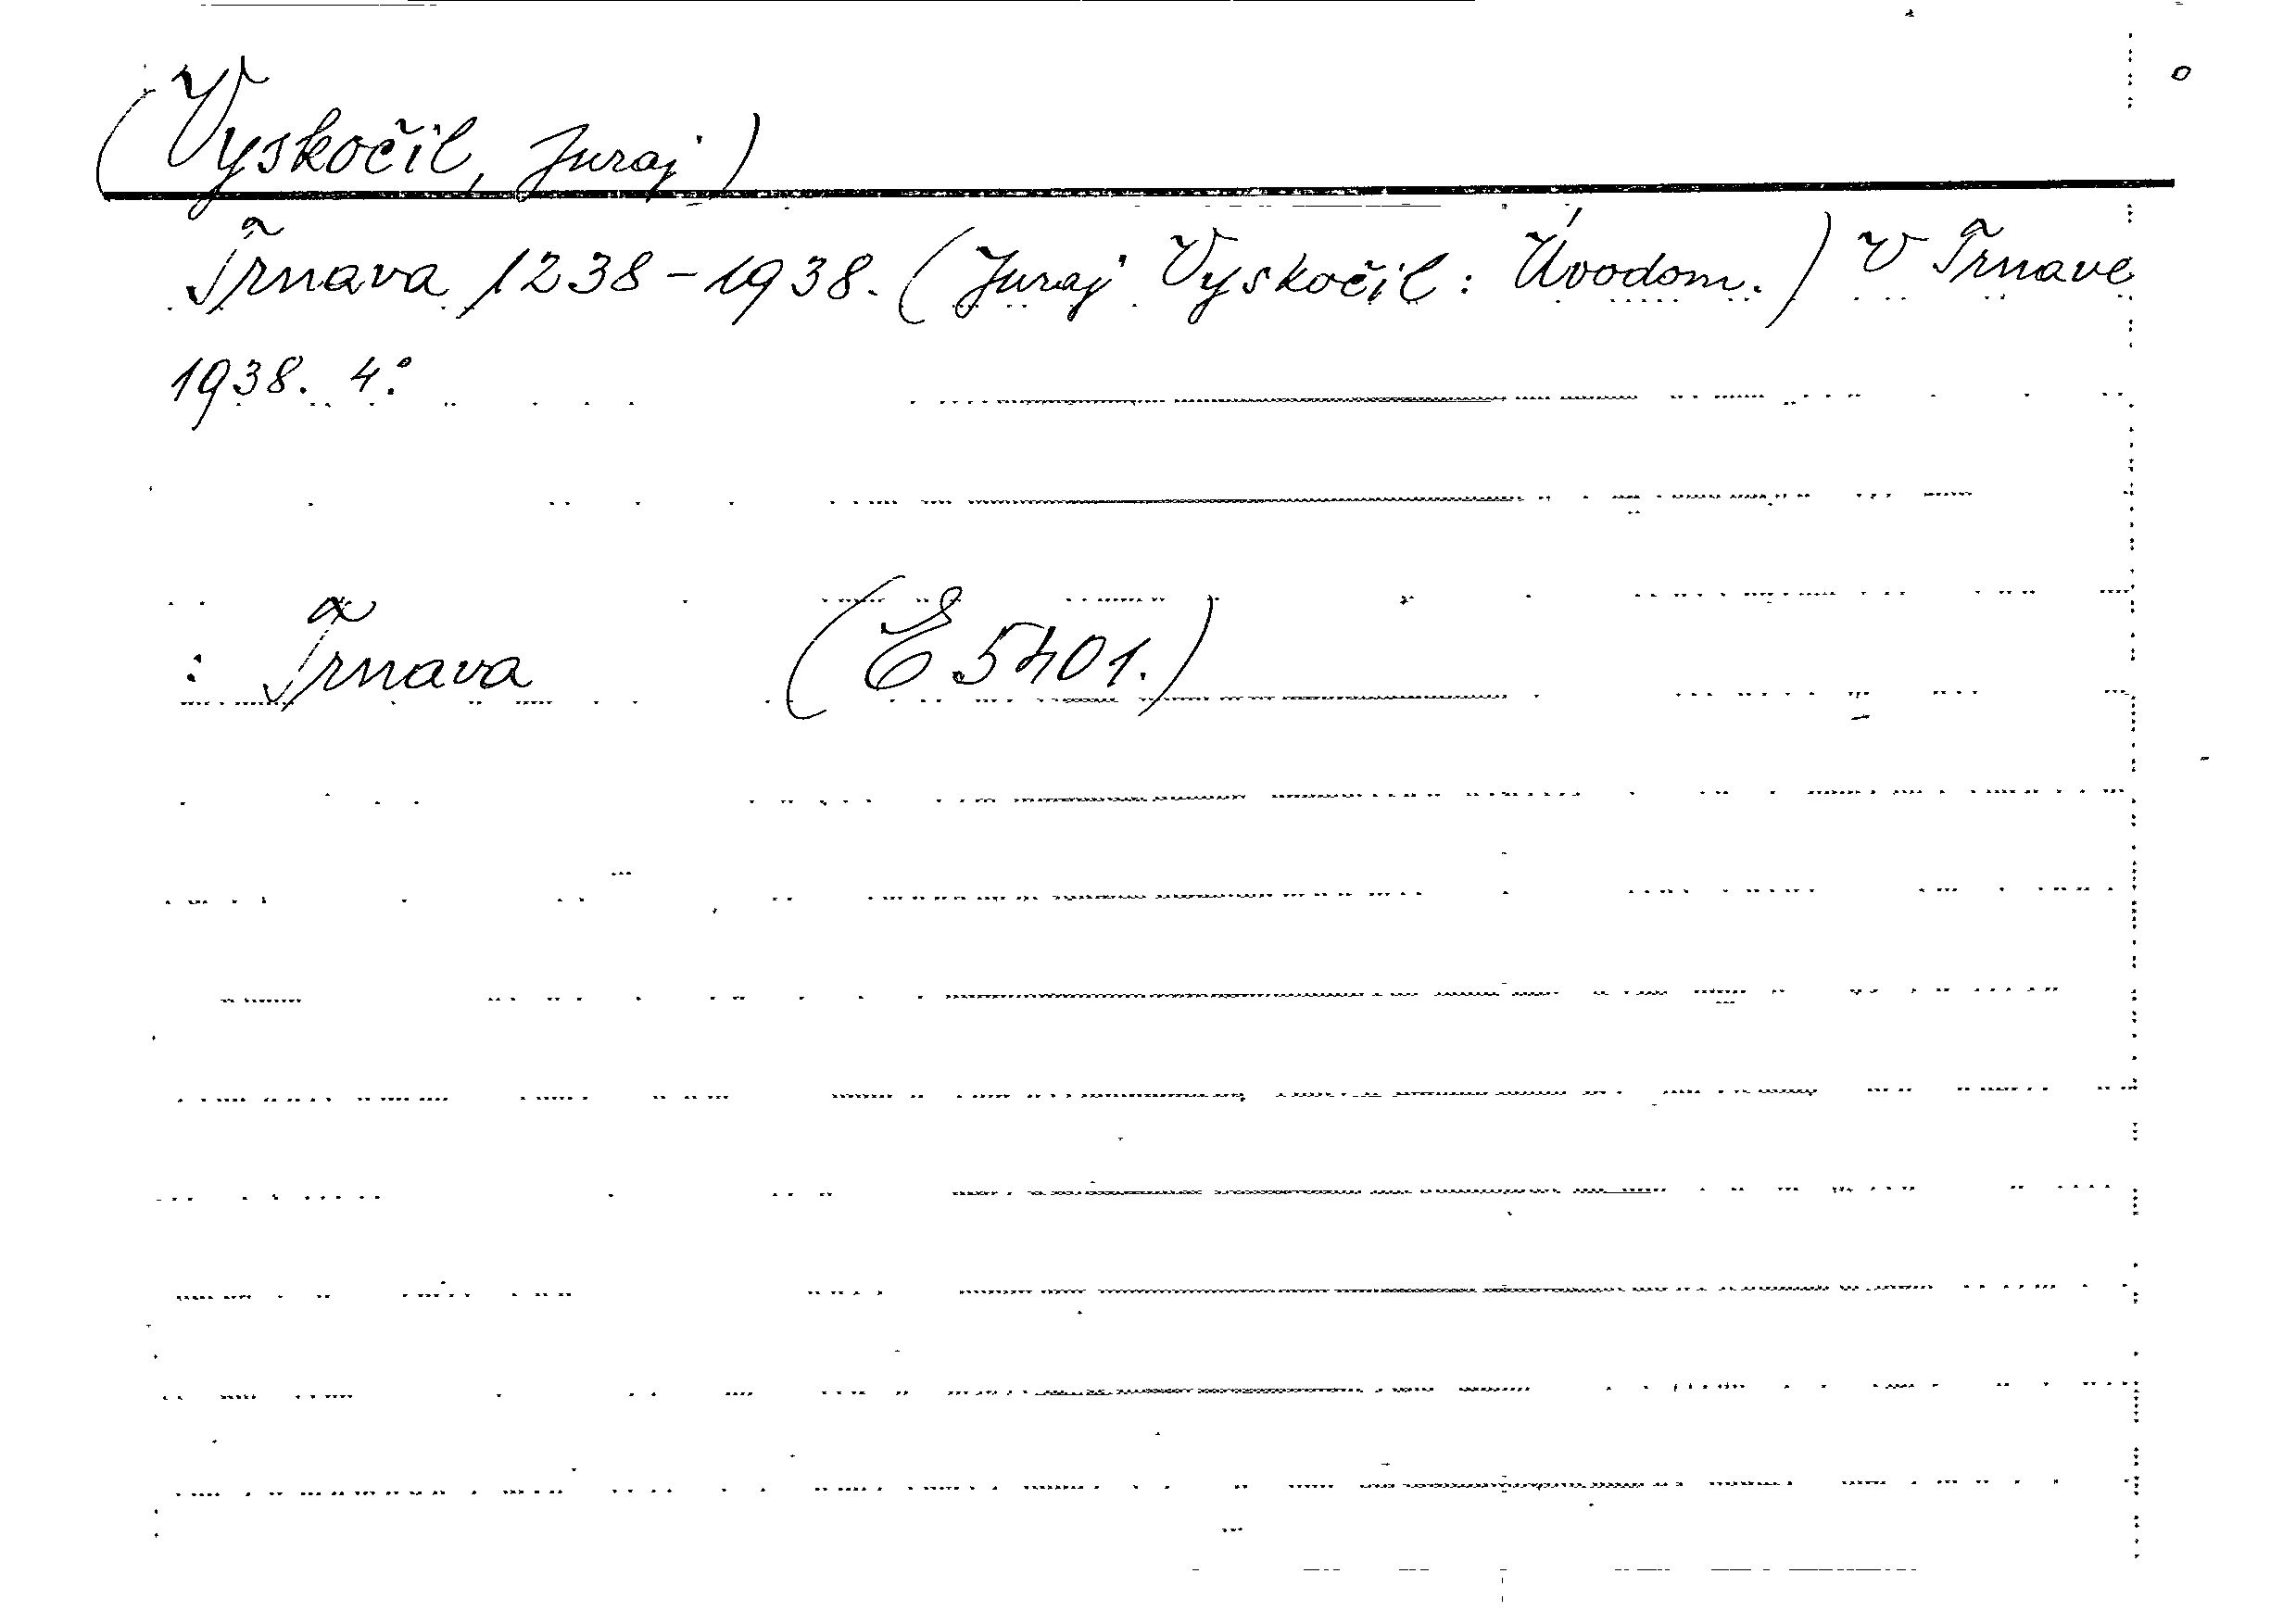 (Vyskočil, Juraj)
Trnava 1238-1938. (Juraj Vyskočil: Úvodom.) V Trnave
1938. 4°
: Trnava (E 5401.)